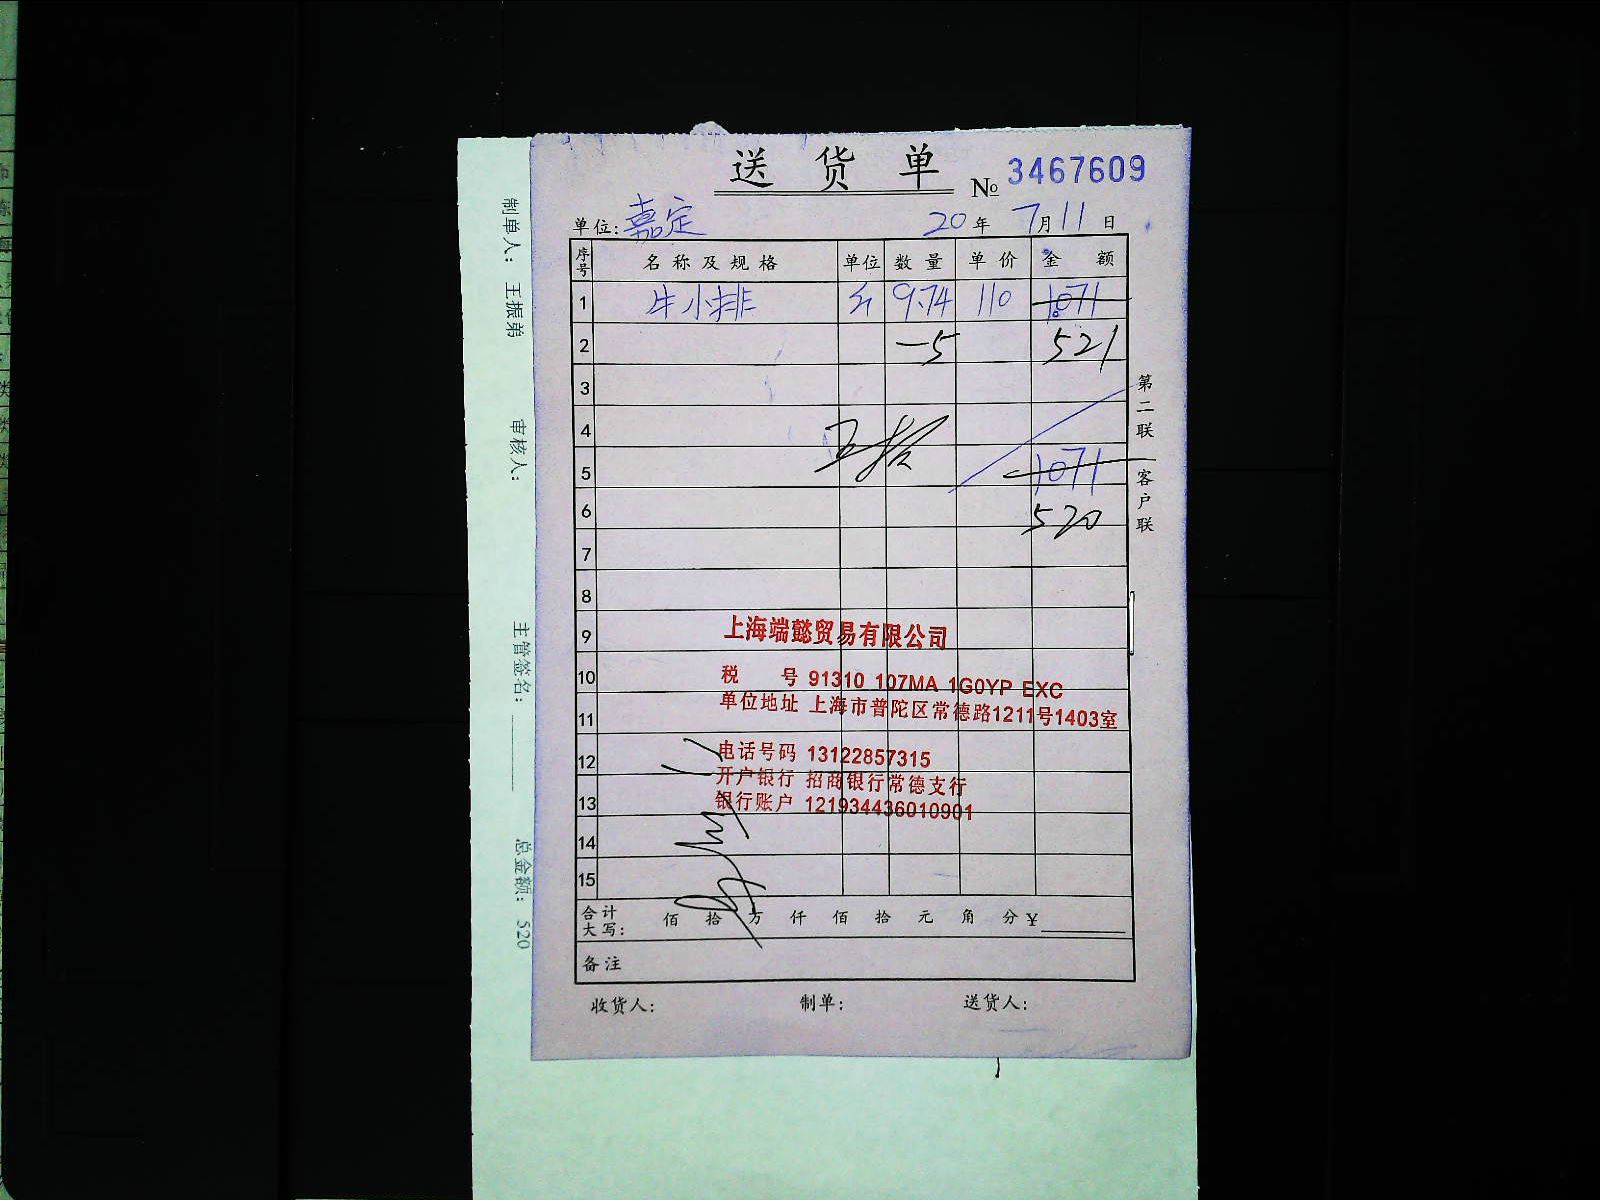 送货单 № 3467609
单位: 嘉定 20 年 7月11日
序号 名称及规格 单位 数量 单价 金额
1 牛小排 斤 9.74 110 1071
2 -5 521
3
4
5 1071
6 520
7
8
9
10
11
12
13
14
15
上海端懿贸易有限公司
税 号 91310 107MA 1G0YP EXC
单位地址 上海市普陀区常德路1211号1403室
电话号码 13122857315
开户银行 招商银行常德支行
银行账户 121934436010901
合计大写: 佰 拾 万 仟 佰 拾 元 角 分 ¥
备注
收货人: 制单: 送货人:
第二联 客户联
制单人: 王振弟 审核人: 主管签名: 总金额: 520